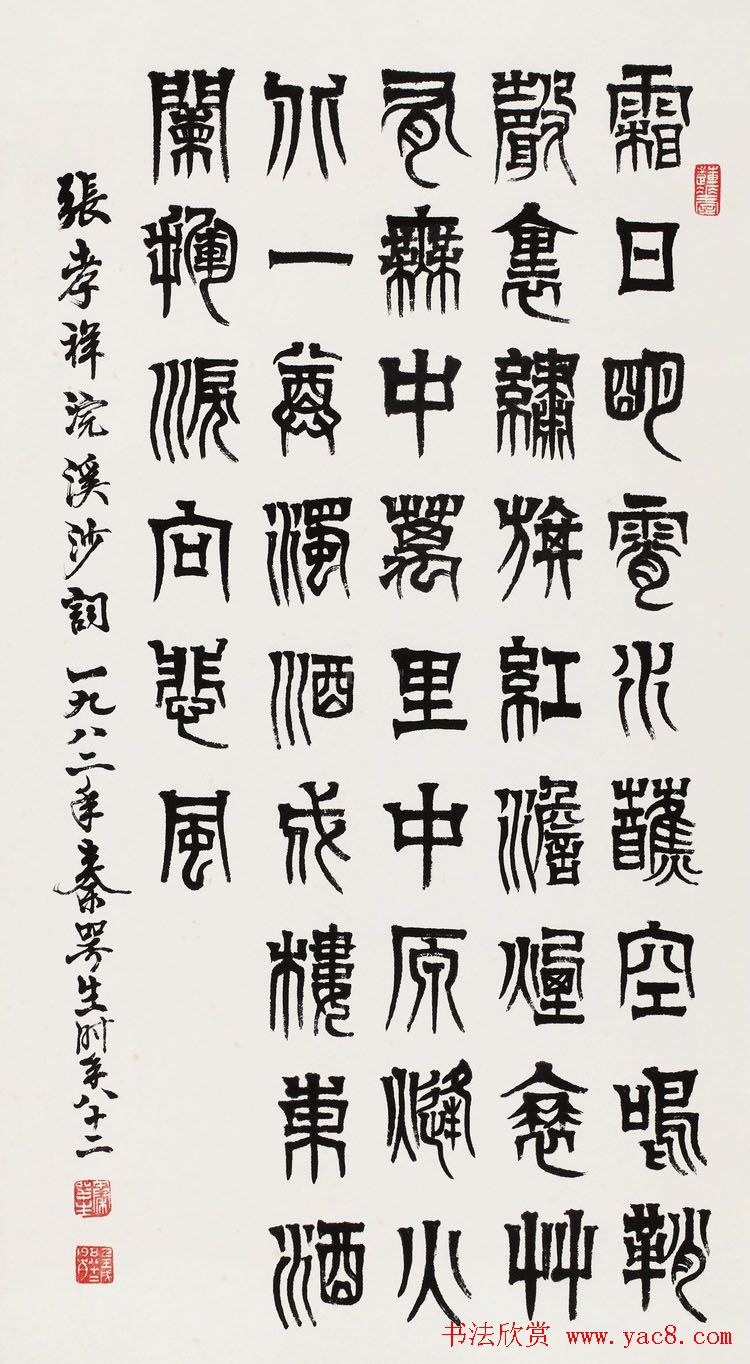 霜日明霄水蘸空鳴鞘
聲裏繡旗紅澹煙衰艸
有無中萬里中原烽火
北一尊濁酒戍樓東酒
闌揮淚向悲風
張孝祥浣溪沙詞一九八二年秦咢生时年八十二
书法欣赏 www.yac8.com